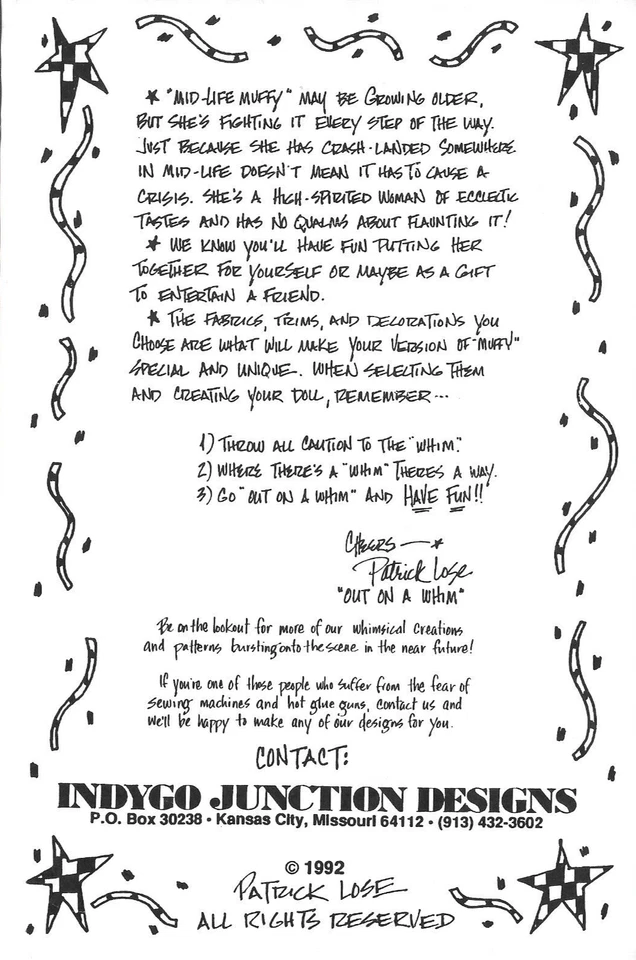 ★ "MID-LIFE MUFFY" MAY BE GROWING OLDER,
BUT SHE'S FIGHTING IT EVERY STEP OF THE WAY.
JUST BECAUSE SHE HAS CRASH-LANDED SOMEWHERE
IN MID-LIFE DOESN'T MEAN IT HAS TO CAUSE A
CRISIS. SHE'S A HIGH-SPIRITED WOMAN OF ECCLECTIC
TASTES AND HAS NO QUALMS ABOUT FLAUNTING IT!
★ WE KNOW YOU'LL HAVE FUN PUTTING HER
TOGETHER FOR YOURSELF OR MAYBE AS A GIFT
TO ENTERTAIN A FRIEND.
★ THE FABRICS, TRIMS, AND DECORATIONS YOU
CHOOSE ARE WHAT WILL MAKE YOUR VERSION OF "MUFFY"
SPECIAL AND UNIQUE. WHEN SELECTING THEM
AND CREATING YOUR DOLL, REMEMBER...
1) THROW ALL CAUTION TO THE "WHIM."
2) WHERE THERE'S A "WHIM" THERES A WAY.
3) GO "OUT ON A WHIM" AND HAVE FUN!!
CHEERS—★
Patrick Lose
"OUT ON A WHIM"
Be on the lookout for more of our whimsical creations
and patterns bursting onto the scene in the near future!
If you're one of those people who suffer from the fear of
sewing machines and hot glue guns, contact us and
we'll be happy to make any of our designs for you.
CONTACT:
INDYGO JUNCTION DESIGNS
P.O. Box 30238 • Kansas City, Missouri 64112 • (913) 432-3602
© 1992
PATRICK LOSE
ALL RIGHTS RESERVED